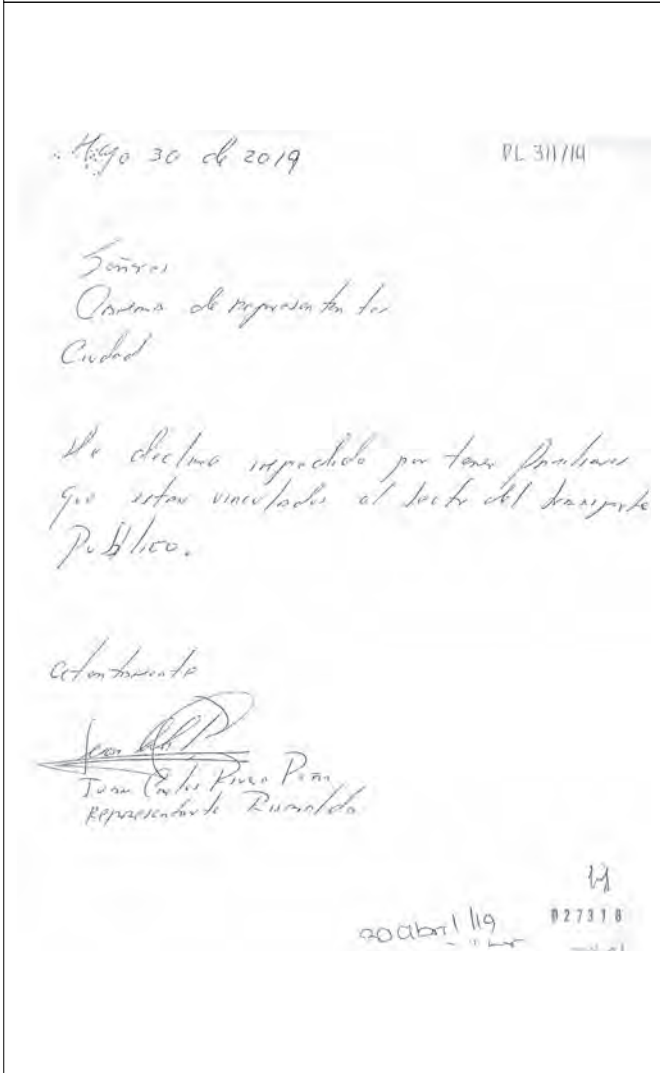 Mayo 30 de 2019
PL 311/19
Señores
Camara de representantes
Ciudad
Me declaro impedido por tener familiares
que estan vinculados al sector del transporte
Publico.
Atentamente
Juan Carlos Rivera Peña
Representante Risaralda
30 abril /19
027318